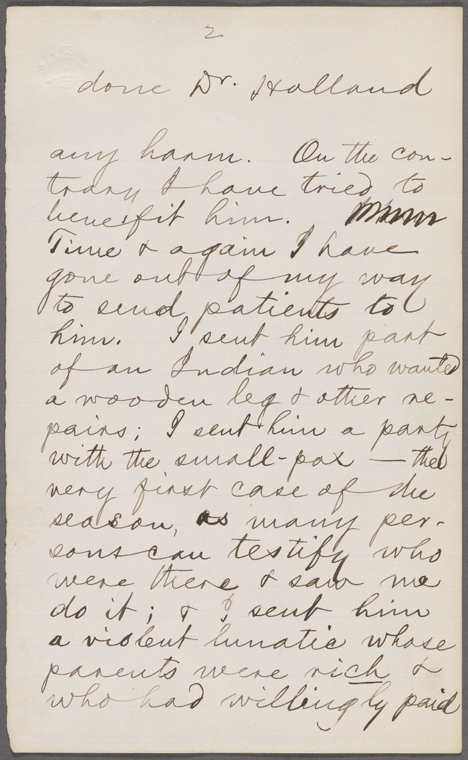 2
done Dr. Holland
any harm. On the con-
trary I have tried to
benefit him.
Time & again I have
gone out of my way
to send patients to
him. I sent him part
of an Indian who wanted
a wooden leg & other re-
pairs; I sent him a party
with the small-pox — the
very first case of the
season, as many per-
sons can testify who
were there & saw me
do it; & I sent him
a violent lunatic whose
parents were rich &
who had willingly paid